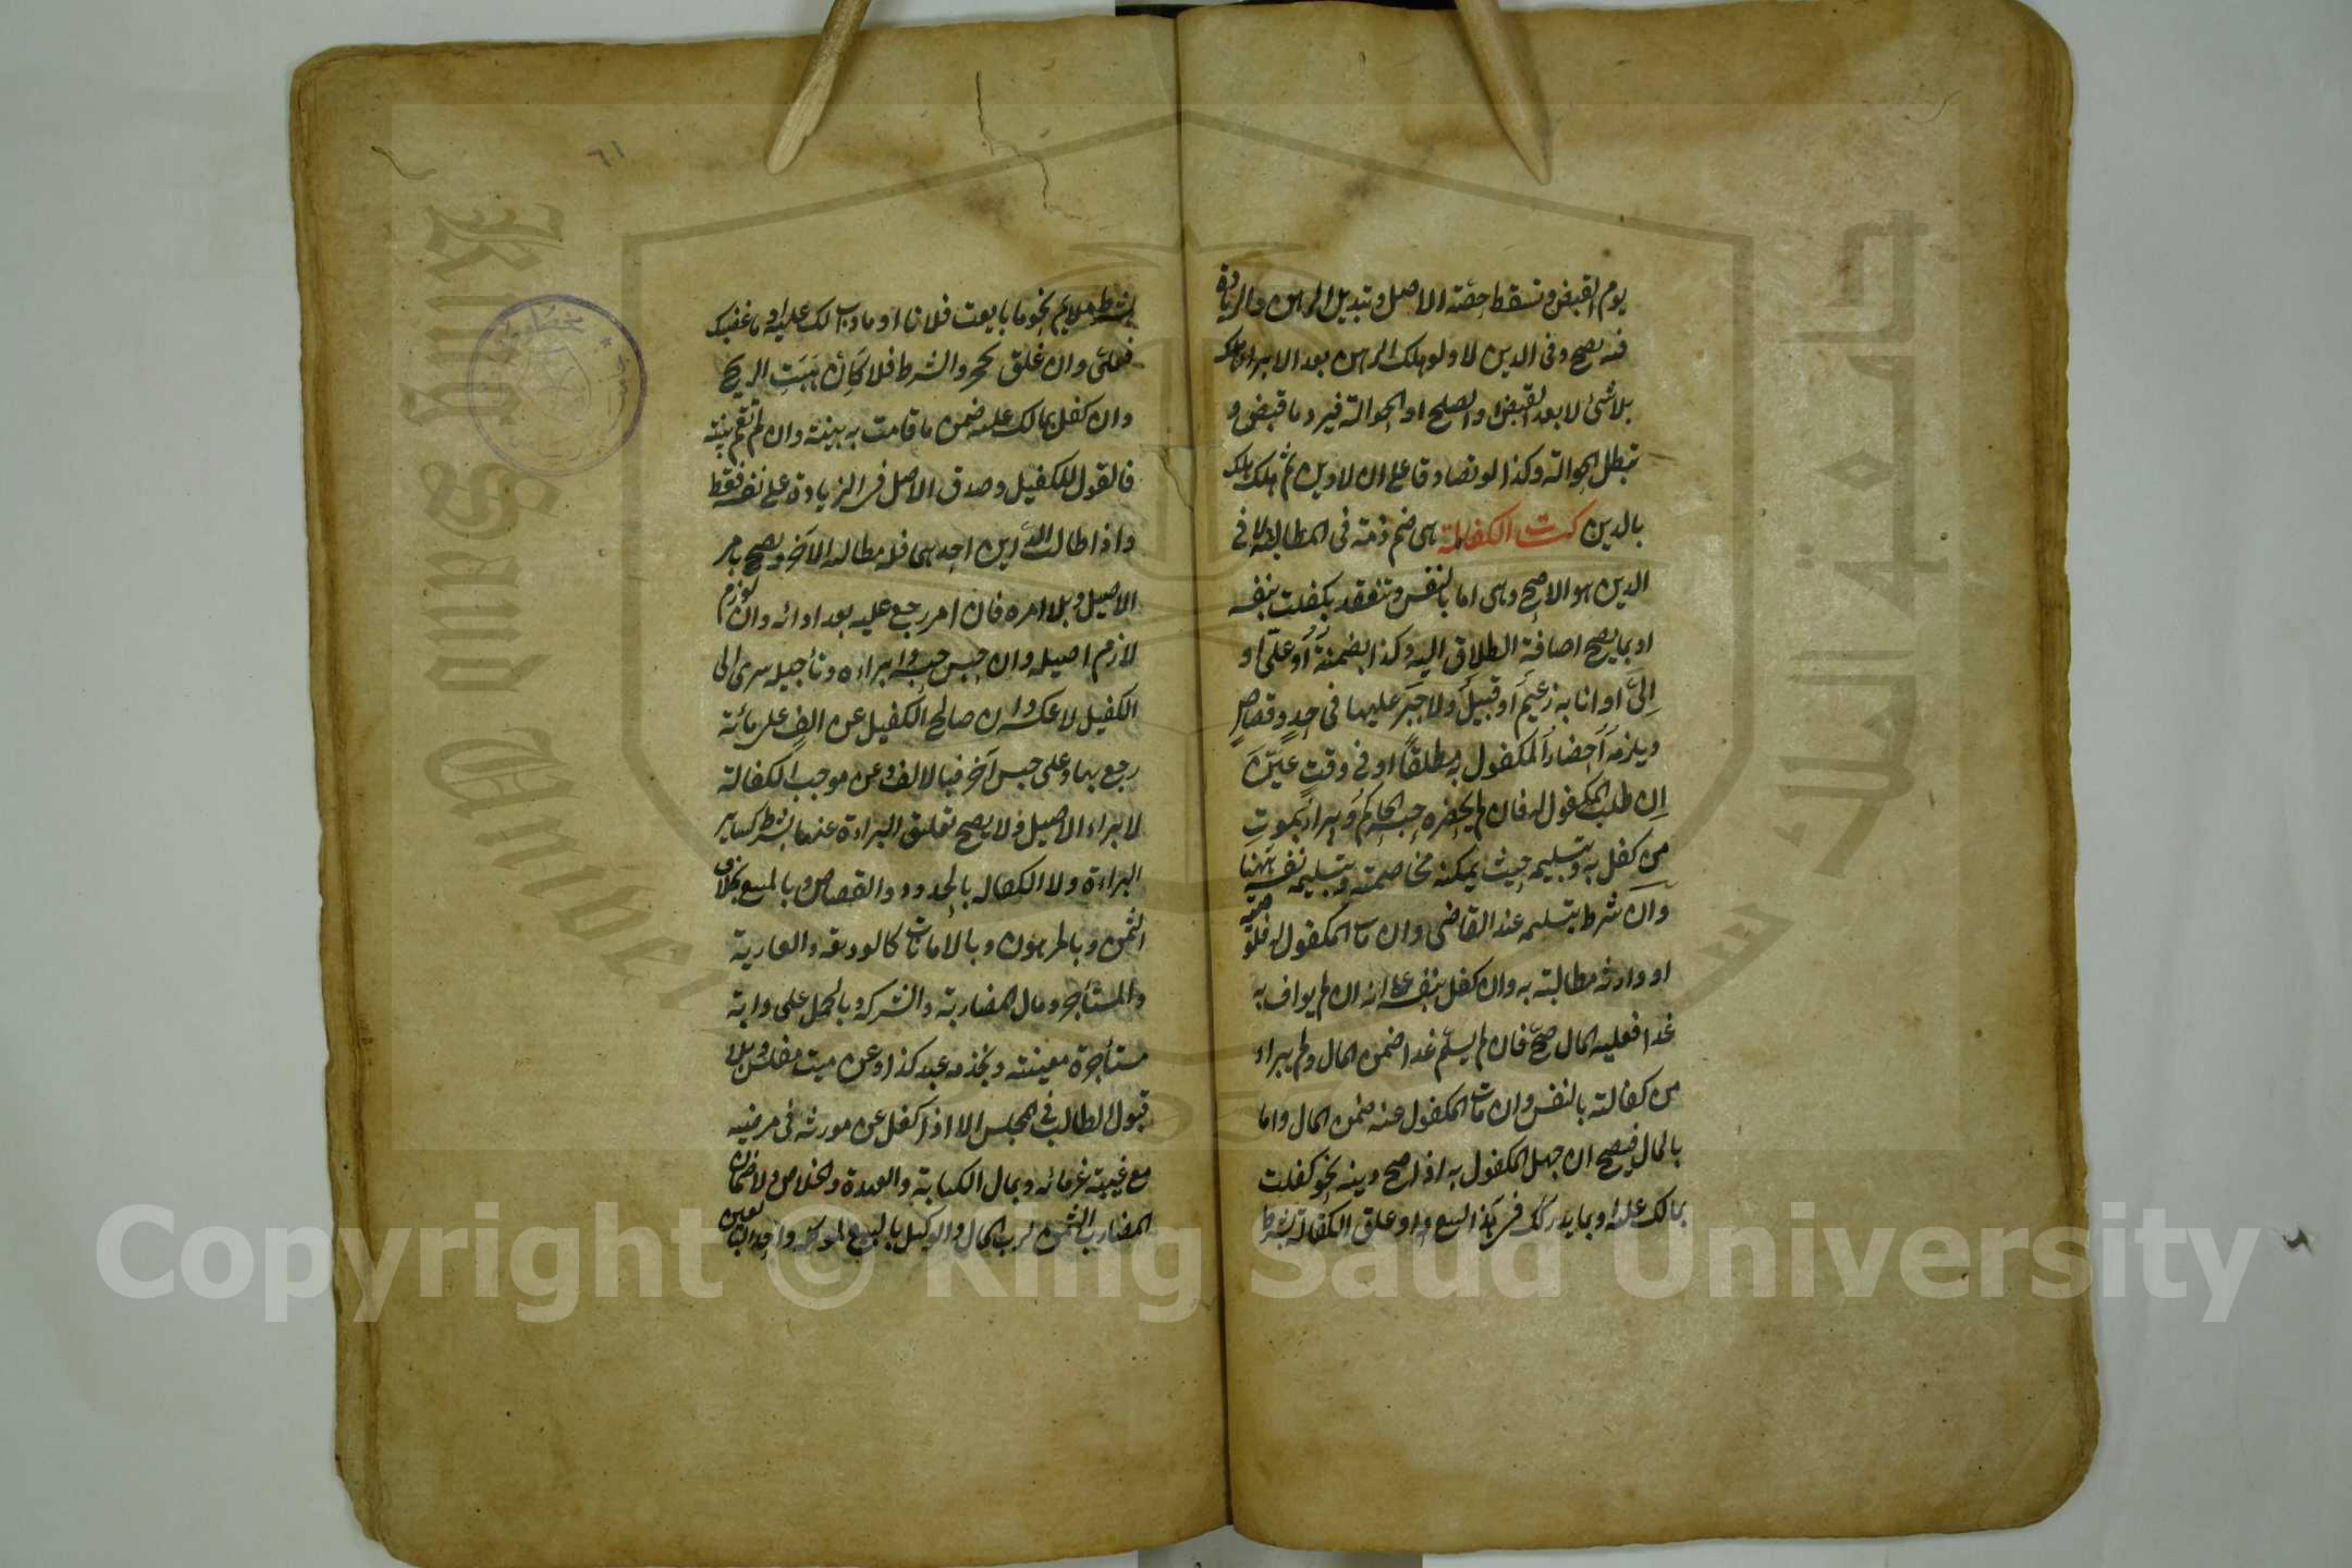 يوم القبض وتسقط حصة الاصل وتبديل الرهن والزيادة
فيه يصح وفى الدين لا ولو هلك الرهن بعد الابراء هلك
بلا شئ لا بعد القبض او الصلح او الحوالة فيرد ما قبض و
تبطل الحوالة وكذا لو تصادقا على ان لا دين ثم هلك هلك
بالدين كتاب الكفالة هى ضم ذمة فى المطالبة لا فى
الدين هو الاصح وهى اما بالنفس وتنعقد بكفلت بنفسه
او بما يصح اضافة الطلاق اليه وكذا بضمنته او علىّ او
اِلىّ او انا به زعيم او قبيل ولا جبر عليها فى حد وقصاص
ويلزمه احضار المكفول به مطلقا او فى وقت عيّن
اِن طلب المكفول له فان لم يحضره حبسه الحاكم ويبراء بموت
من كفل به وبتسليمه حيث يمكنه مخاصمته وبتسليمه نفسه هنا
وان شرط تسليمه عند القاضى وان مات المكفول له فلوصيه
او وارثه مطالبته به وان كفل بنفسه على انه ان لم يواف به
غدا فعليه المال صحّ فان لم يسلّم غدا ضمن المال ولم يبراء
من كفالته بالنفس وان مات المكفول عنه ضمن المال واما
بالمال فيصح ان جهل المكفول به اذا صح دينه نحو كفلت
بمالك عليه او بما يدركك فى هذا البيع او علق الكفالة بشرط
٦١
بشرط ملايم نحو ما بايعت فلانا او ما ذاب لك عليه او ما غصبك
فعلىّ وان علق بمجرد الشرط فلا كَاِن هَبّت الريح
وان كفل بمالك عليه ضمن ما قامت به بينة وان لم تقم بينة
فالقول للكفيل وصدق الاصل فى الزيادة على نفسه فقط
واذا طالب الداين احدهما فله مطالبة الآخر ويصح بامر
الاصيل وبلا امره فان امر رجع عليه بعد ادائه وان لوزم
لازم اصيله وان حبس حبسه وابراءه وتأجيله سرى الى
الكفيل لا عكسه وان صالح الكفيل عن الفٍ على مائة
رجع بها وعلى جنس آخر فبالالف وعن موجب الكفالة
لا يبراء الاصيل ولا يصح تعليق البراءة عنها بشرط كساير
البراءة ولا الكفاله بالحدود والقصاص وبالمبيع بخلاف
الثمن وبالمرهون وبالامانات كالوديعه والعارية
والمستأجر ومال المضاربة والشركه وبالحمل على دابة
مستأجرة معينته وبخدمه عبد كذا وعن ميت مفلس وبلا
قبول الطالب فى المجلس الا اذا كفل عن مورثه فى مرضه
مع غيبة غرمائه وبمال الكتابة والعهدة والخلاص ولا ضمان
المضارب الثمن لرب المال والوكيل بالبيع لموكله واحد البايعين
Copyright © King Saud University